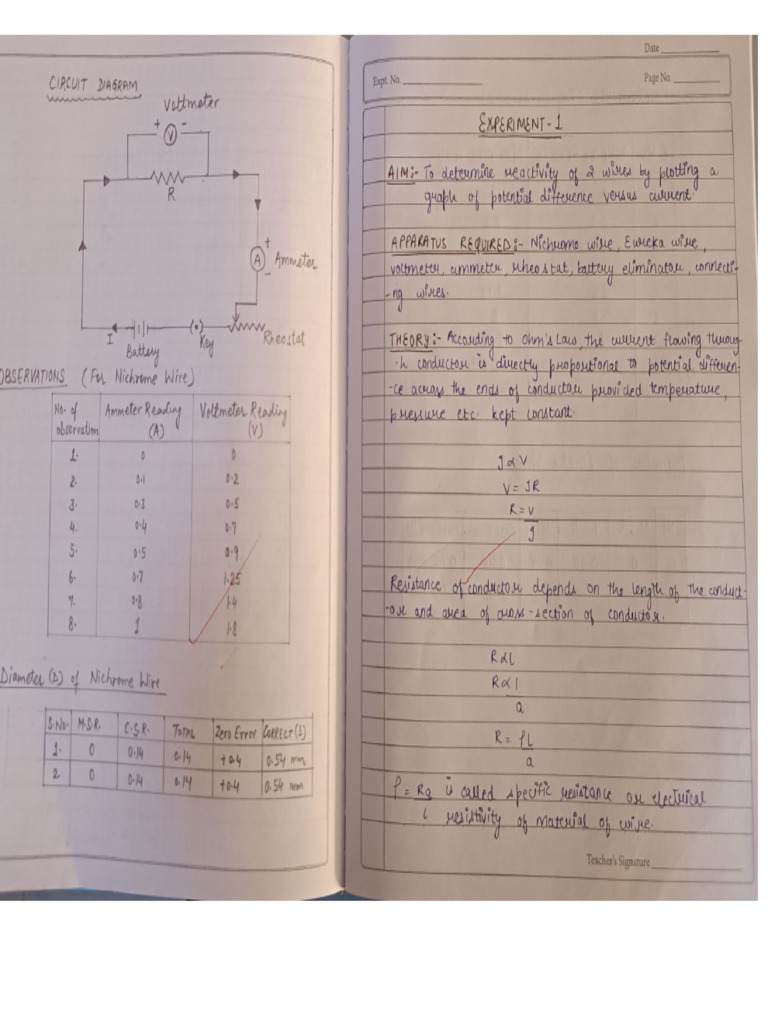 CIRCUIT DIAGRAM
Voltmeter
+ V -
R
+
A Ammeter
-
I
Battery
Key
Rheostat
OBSERVATIONS (For Nichrome Wire)
No. of observation Ammeter Reading (A) Voltmeter Reading (V)
1. 0 0
2. 0.1 0.2
3. 0.3 0.5
4. 0.4 0.7
5. 0.5 0.9
6. 0.7 1.25
7. 0.8 1.4
8. 1 1.8
Diameter (D) of Nichrome Wire
S.No. M.S.R. C.S.R. TOTAL Zero Error Correct (D)
1. 0 0.14 0.14 +0.4 0.54 mm
2 0 0.14 0.14 +0.4 0.54 mm
Date
Expt. No. Page No.
EXPERIMENT-1
AIM:- To determine reactivity of 2 wires by plotting a
graph of potential difference versus current.
APPARATUS REQUIRED:- Nichrome wire, Eureka wire,
voltmeter, ammeter, rheostat, battery eliminator, connecti-
-ng wires.
THEORY:- According to Ohm's Law, the current flowing throug-
-h conductor is directly proportional to potential differen-
-ce across the ends of conductor provided temperature,
pressure etc. kept constant.
I α V
V = IR
R = V
I
Resistance of conductor depends on the length of the conduct-
-or and area of cross-section of conductor.
R α L
R α 1
a
R = ρL
a
ρ = Ra is called specific resistance or electrical
L resistivity of material of wire.
Teacher's Signature